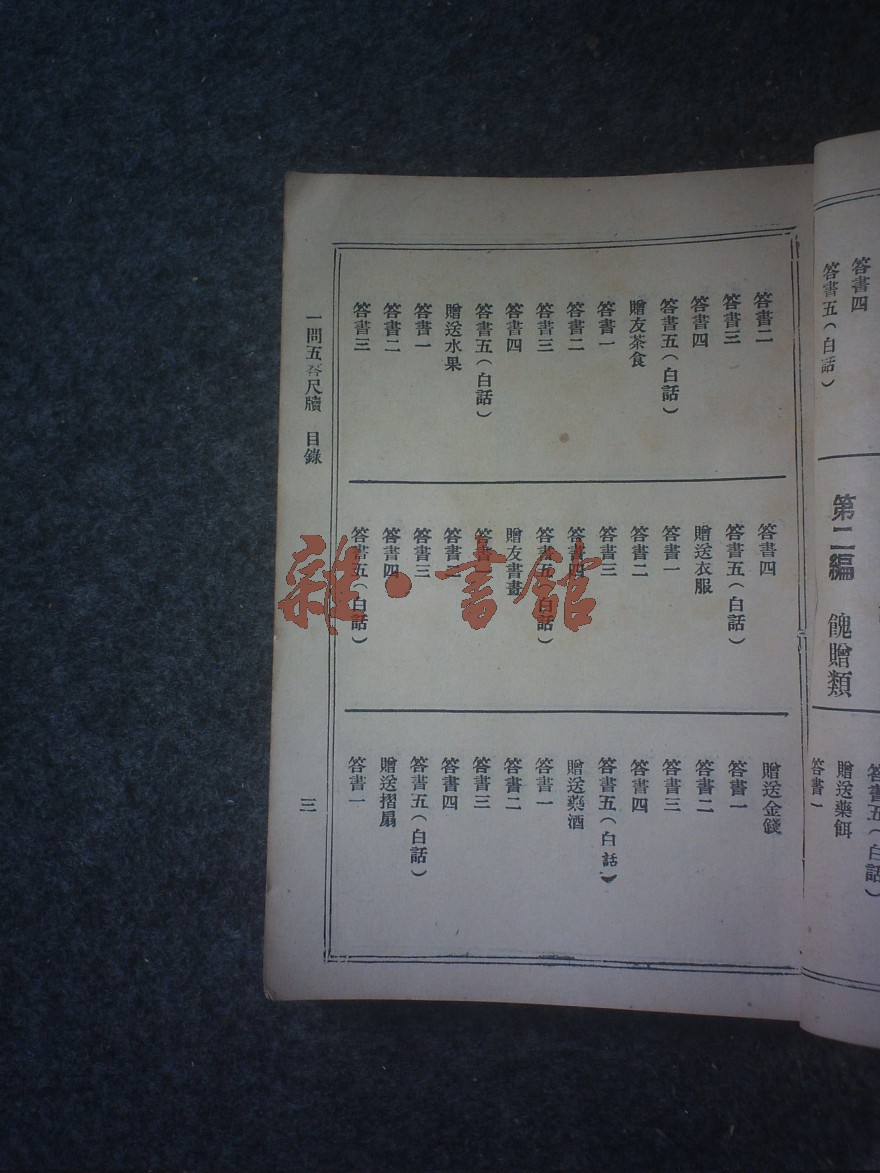 答書四
答書五（白話）
第二編　餽贈類
答書五（白話）
贈送藥餌
答書一
答書二
答書三
答書四
答書五（白話）
贈友茶食
答書一
答書二
答書三
答書四
答書五（白話）
贈送水果
答書一
答書二
答書三
答書四
答書五（白話）
贈送衣服
答書一
答書二
答書三
答書四
答書五（白話）
贈友書畫
答書一
答書二
答書三
答書四
答書五（白話）
贈送金錢
答書一
答書二
答書三
答書四
答書五（白話）
贈送藥酒
答書一
答書二
答書三
答書四
答書五（白話）
贈送摺扇
答書一
一問五答尺牘　目錄
三
雜·書館